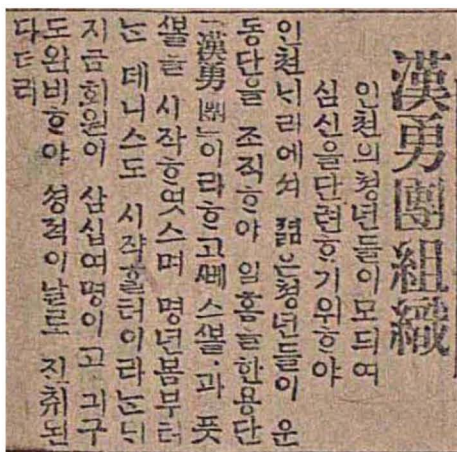 漢勇團組織
인천의청년들이모듸여
심신을단련ᄒᆞ기위ᄒᆞ야
인천ᄂᆡ리에셔 졂은청년들이 운
동단을 조직ᄒᆞ야 일홈을한용단
「漢勇團」이라ᄒᆞ고ᄲᅦ스ᄲᅩᆯ과 풋
ᄲᅩᆯ을 시작ᄒᆞ엿스며 명년봄부터
ᄂᆞᆫ 데니스도 시작ᄒᆞᆯ터이라ᄂᆞᆫᄃᆡ
지금회원이 삼십여명이고 긔구
도완비ᄒᆞ야 셩적이날로 진취된
다더라